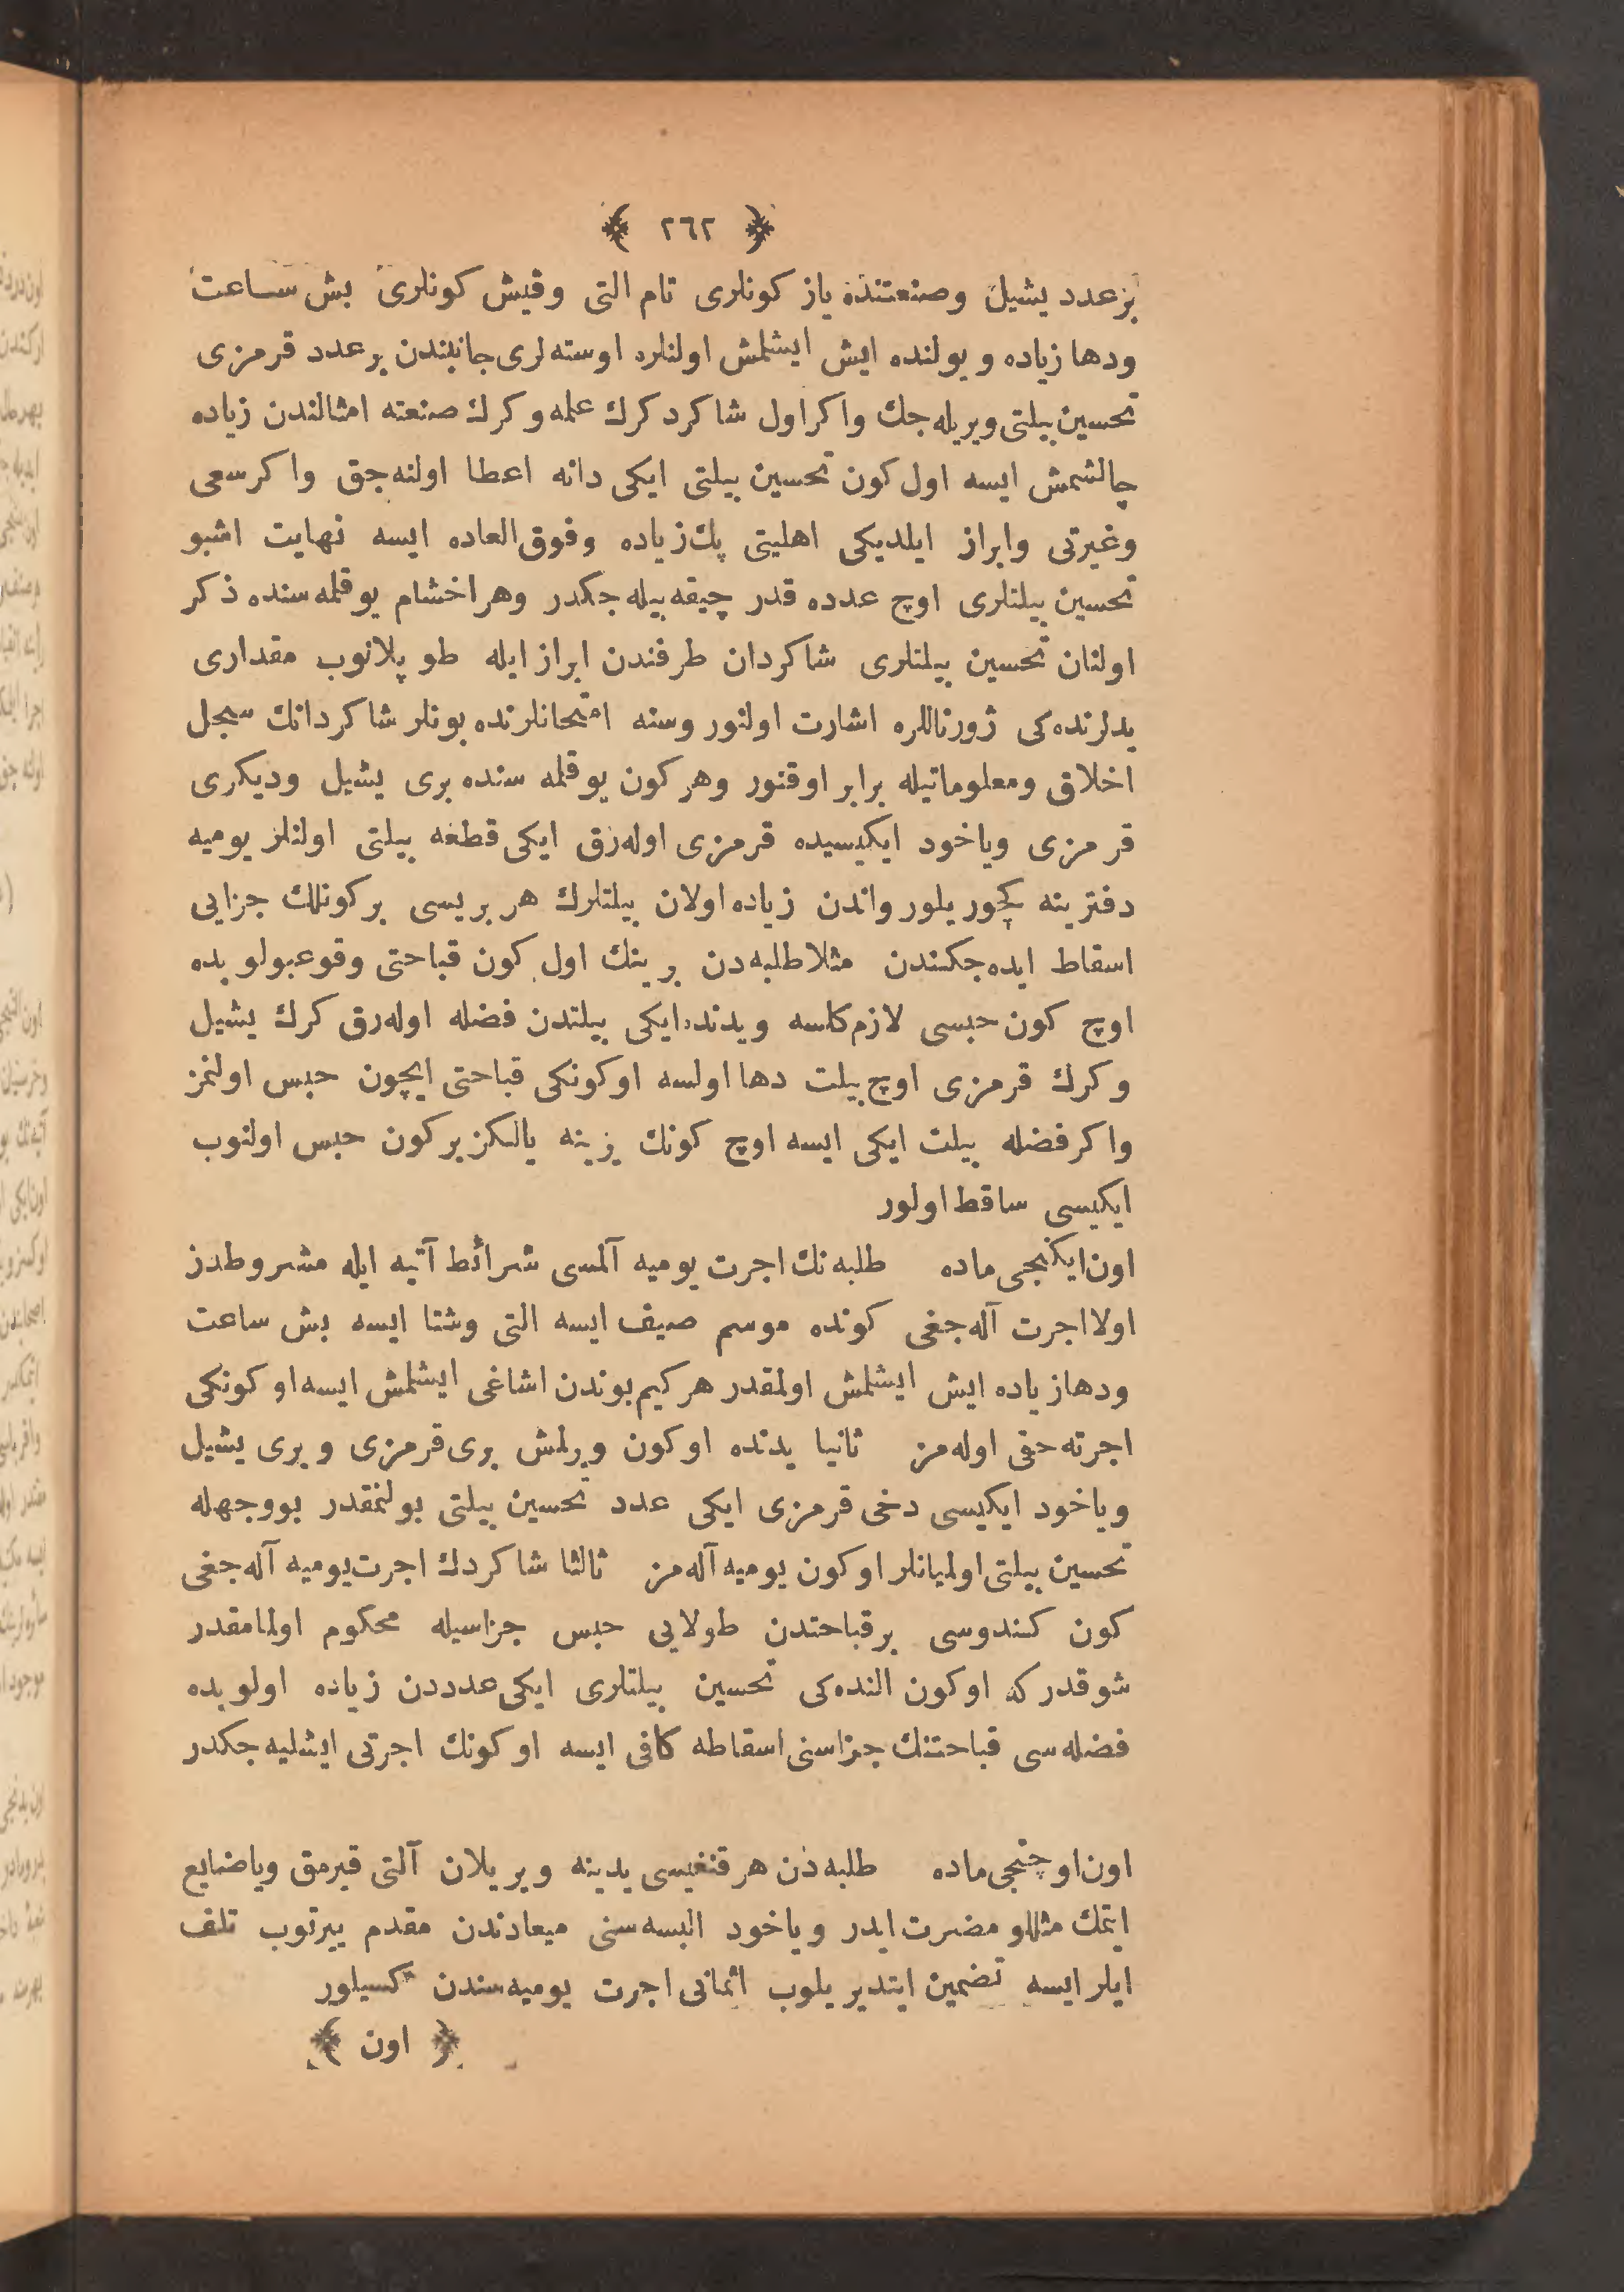 ﴿ ٢٦٢ ﴾
بر عدد يشيل وصنعتنده ياز كونلرى تام التى وقيش كونلرى بش ساعت
ودها زياده ويولنده ايش ايشلمش اولنلره اوسته لرى جانبندن بر عدد قرمزى
تحسين بيلتى ويريله جك واكر اول شاكرد كرك علمه وكرك صنعته امثالندن زياده
چالشمش ايسه اول كون تحسين بيلتى ايكى دانه اعطا اولنه جق واكر سعى
وغيرتى وابراز ايلديكى اهليتى پك زياده وفوق العاده ايسه نهايت اشبو
تحسين بيلتلرى اوچ عدده قدر چيقه بيله جكدر وهر اخشام يوقلمه سنده ذكر
اولنان تحسين بيلتلرى شاكردان طرفندن ابراز ايله طوپلانوب مقدارى
يدلرنده كى ژورناللره اشارت اولنور وسنه امتحانلرنده بونلر شاكردانك سجل
اخلاق ومعلوماتيله برابر اوقنور وهر كون يوقلمه سنده برى يشيل وديكرى
قرمزى وياخود ايكيسيده قرمزى اوله رق ايكى قطعه بيلتى اولنلر يوميه
دفترينه كچوريلور واندن زياده اولان بيلتلرك هر بريسى بر كونلك جزايى
اسقاط ايده جكندن مثلا طلبه دن برينك اول كون قباحتى وقوعبولوبده
اوچ كون حبسى لازم كلسه ويدنده ايكى بيلتدن فضله اوله رق كرك يشيل
وكرك قرمزى اوچ بيلت دها اولسه اوكونكى قباحتى ايچون حبس اولنمز
واكر فضله بيلت ايكى ايسه اوچ كونك يرينه يالكز بر كون حبس اولنوب
ايكيسى ساقط اولور
اون ايكنجى ماده طلبه نك اجرت يوميه آلمسى شرائط آتيه ايله مشروطدر
اولا اجرت آله جغى كونده موسم صيف ايسه التى وشتا ايسه بش ساعت
ودها زياده ايش ايشلمش اولمقدر هر كيم بوندن اشاغى ايشلمش ايسه او كونكى
اجرته حقى اوله مز ثانيا يدنده اوكون ويرلمش برى قرمزى وبرى يشيل
وياخود ايكيسى دخى قرمزى ايكى عدد تحسين بيلتى بولنمقدر بووجهله
تحسين بيلتى اولميانلر اوكون يوميه آله مز ثالثا شاكردك اجرت يوميه آله جغى
كون كندوسى بر قباحتدن طولايى حبس جزاسيله محكوم اولمامقدر
شو قدر كه اوكون النده كى تحسين بيلتلرى ايكى عدددن زياده اولوبده
فضله سى قباحتنك جزاسنى اسقاطه كافى ايسه اوكونك اجرتى ايشليه جكدر
اون اوچنجى ماده طلبه دن هر قنغيسى يدينه ويريلان آلتى قيرمق وياضايع
ايتمك مثللو مضرت ايدر وياخود البسه سنى ميعادندن مقدم ييرتوب تلف
ايلر ايسه تضمين ايتديريلوب اثمانى اجرت يوميه سندن كسيلور
﴿ اون ﴾